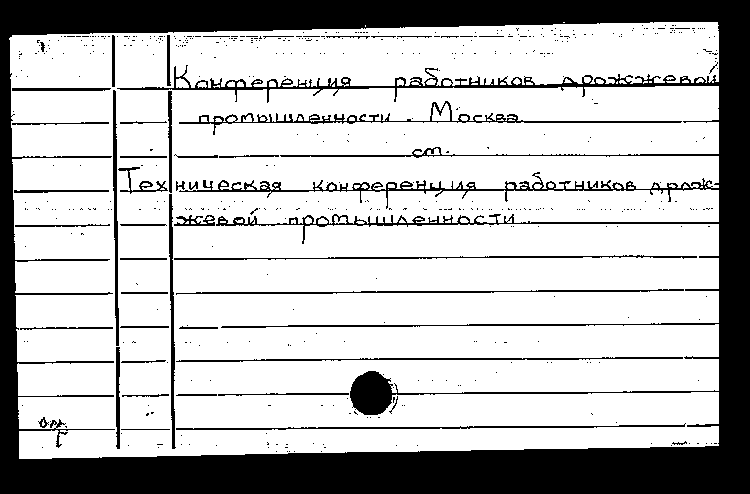 Конференция работников дрожжевой
промышленности. Москва
см.
Техническая конференция работников дрож-
жевой промышленности